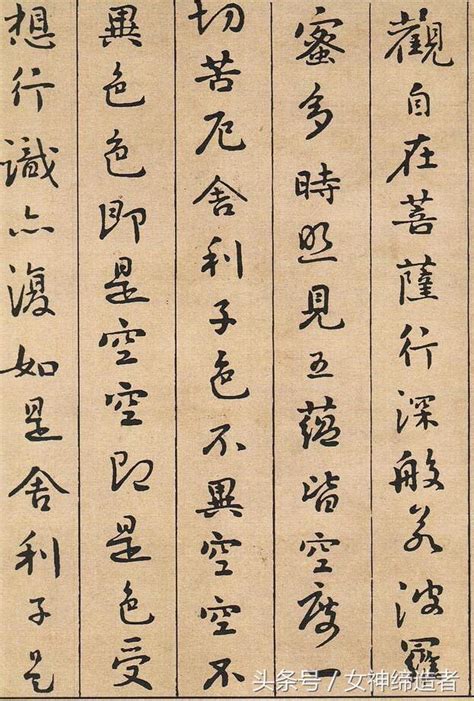 觀自在菩薩行深般若波羅
蜜多時照見五蘊皆空度一
切苦厄舍利子色不異空空不
異色色即是空空即是色受
想行識亦復如是舍利子是
头条号 / 女神缔造者